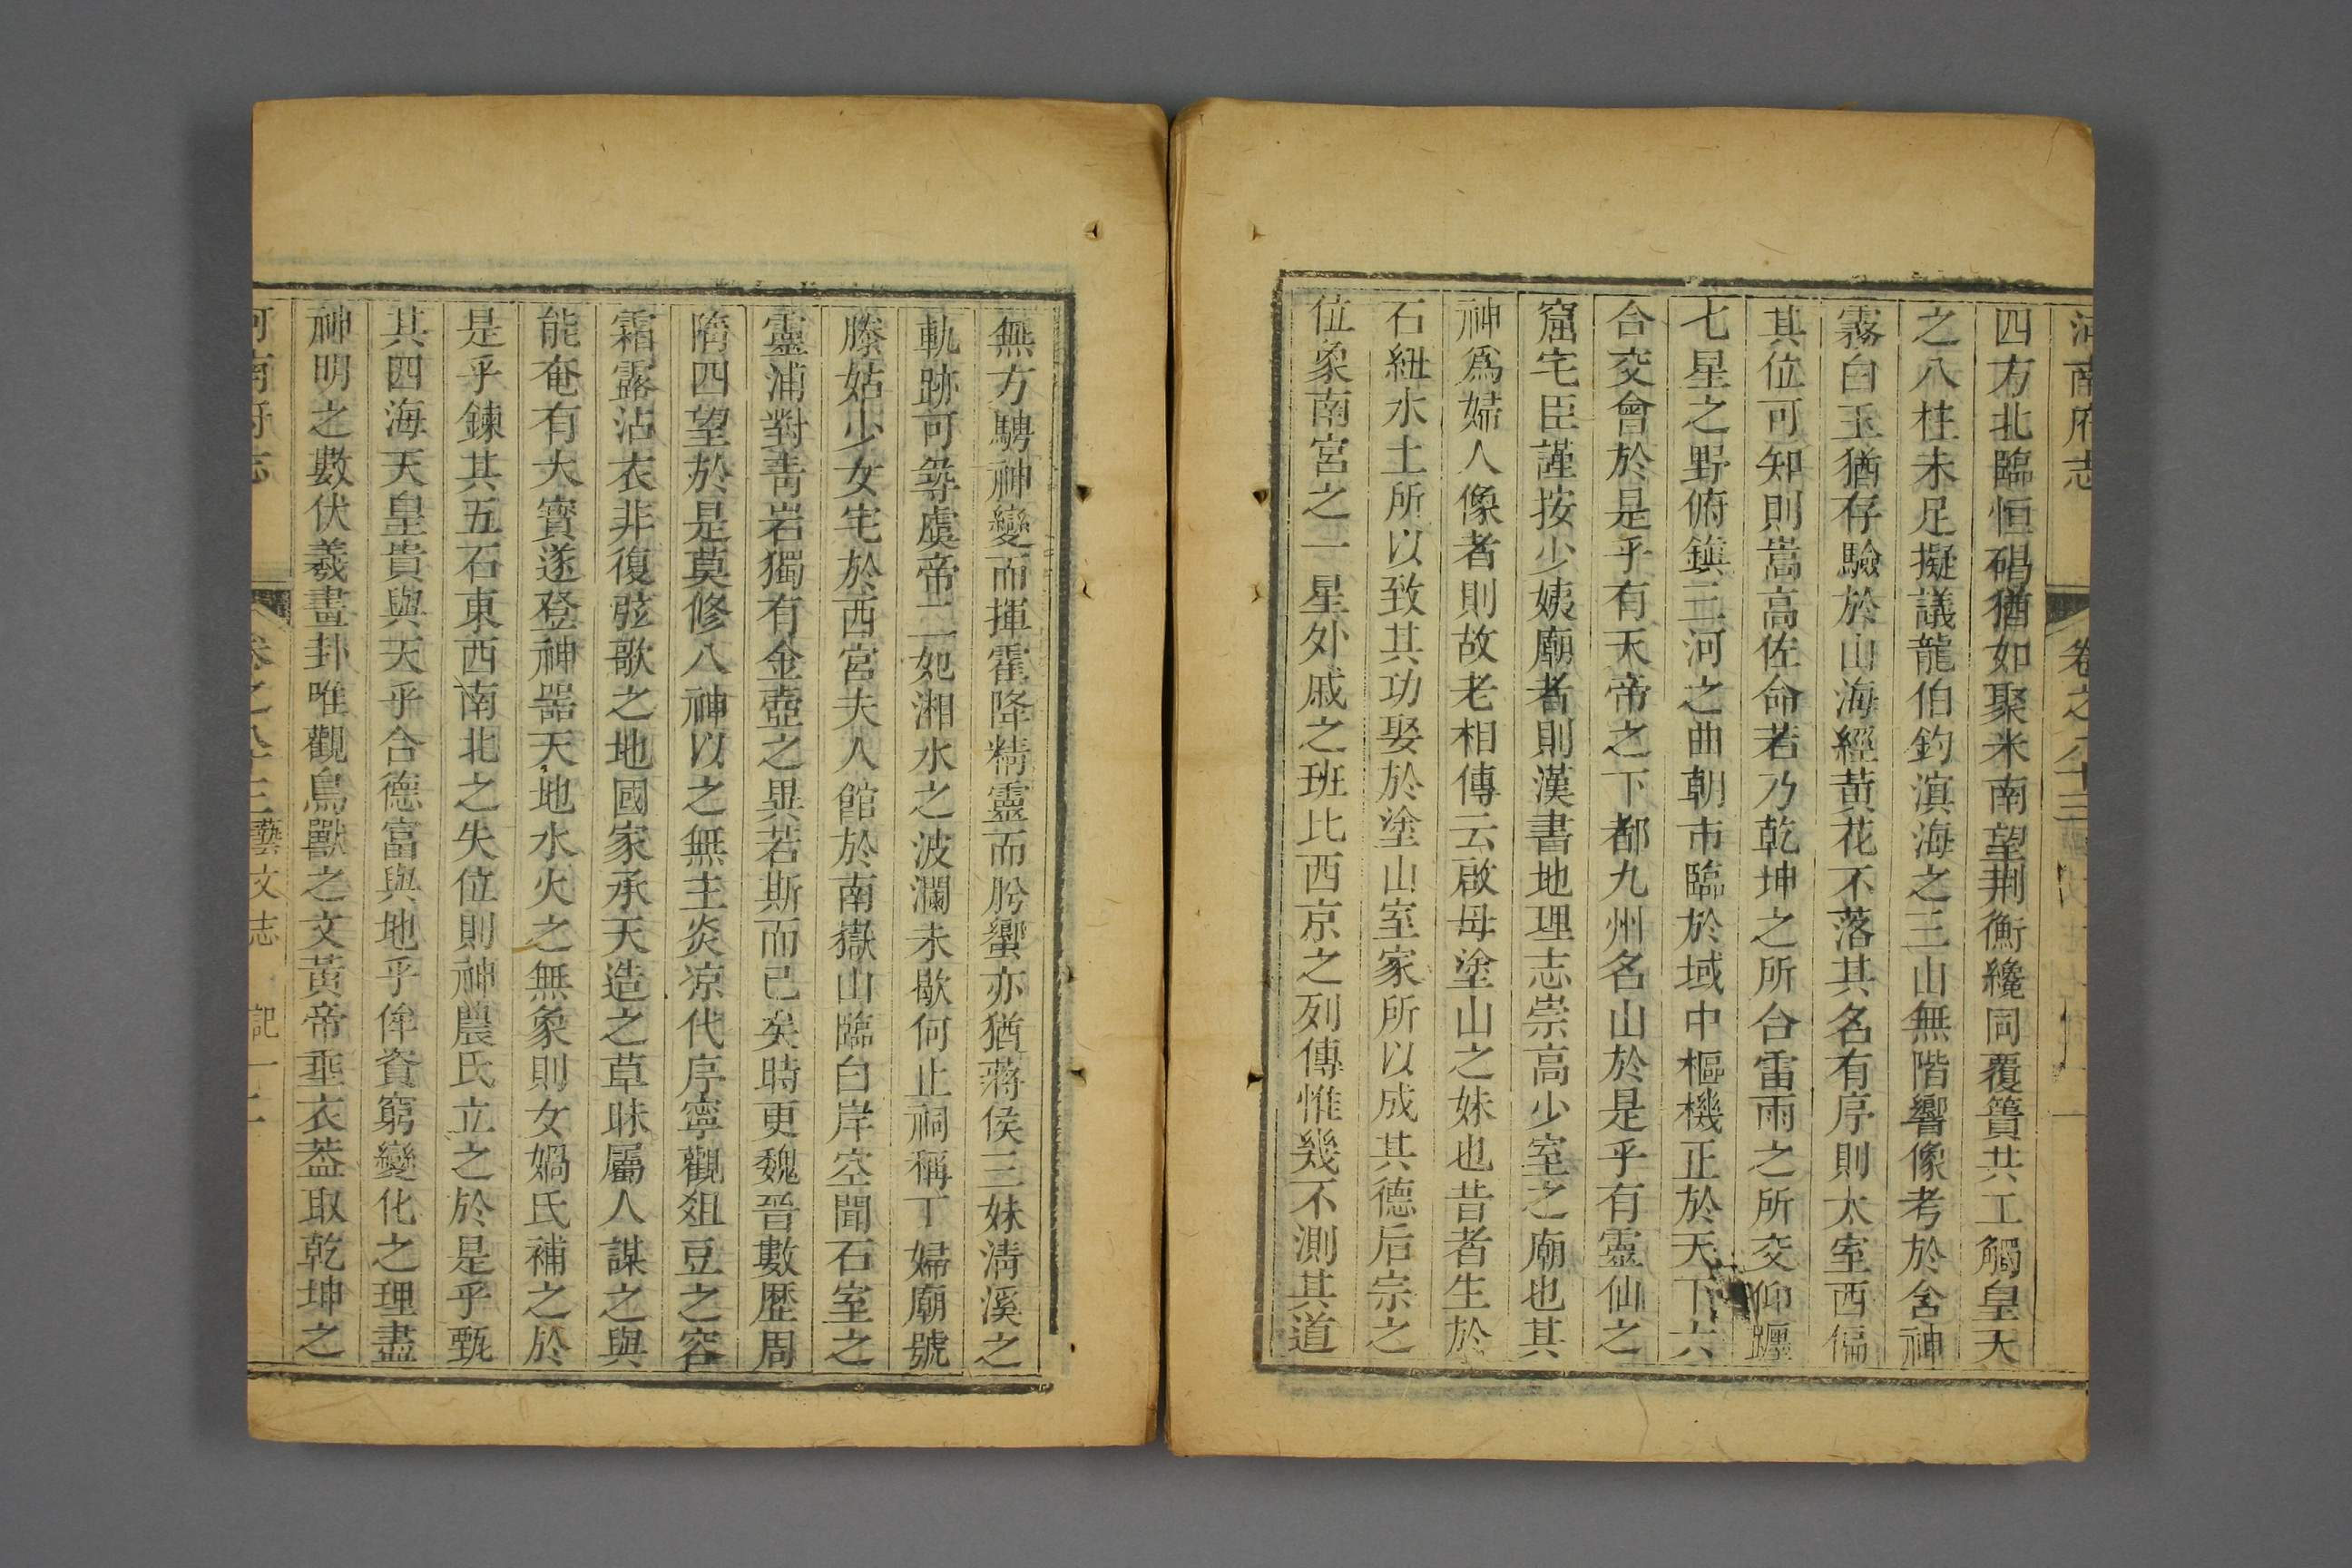 河南府志 卷之八十三
四方北臨恒碣猶如聚米南望荆衡纔同覆簣共工觸皇天
之八柱未足擬議龍伯釣滇海之三山無階響像考於含神
霧白玉猶存驗於山海經黃花不落其名有序則太室西偏
其位可知則嵩高佐命若乃乾坤之所合雷雨之所交仰躔
七星之野俯鎮三河之曲朝市臨於域中樞機正於天下六
合交會於是乎有天帝之下都九州名山於是乎有靈仙之
窟宅臣謹按少姨廟者則漢書地理志崇高少室之廟也其
神爲婦人像者則故老相傳云啟母塗山之妹也昔者生於
石紐水土所以致其功娶於塗山室家所以成其德后宗之
位象南宮之一星外戚之班比西京之列傳惟幾不測其道
無方騁神變而揮霍降精靈而肸蠁亦猶蔣侯三妹淸溪之
軌跡可尋虞帝二妃湘水之波瀾未歇何止祠稱丁婦廟號
滕姑少女宅於西宮夫人館於南嶽山臨白岸空聞石室之
靈浦對靑岩獨有金壺之異若斯而已矣時更魏晉數歷周
隋四望於是莫修八神以之無主炎凉代序寧觀俎豆之容
霜露沾衣非復弦歌之地國家承天造之草昧屬人謀之與
能奄有大寳遂登神器天地水火之無象則女媧氏補之於
是乎鍊其五石東西南北之失位則神農氏立之於是乎甄
其四海天皇貴與天乎合德富與地乎侔資窮變化之理盡
神明之數伏羲畫卦唯觀鳥獸之文黃帝垂衣蓋取乾坤之
河南府志 卷之八十三 藝文志 記 十二